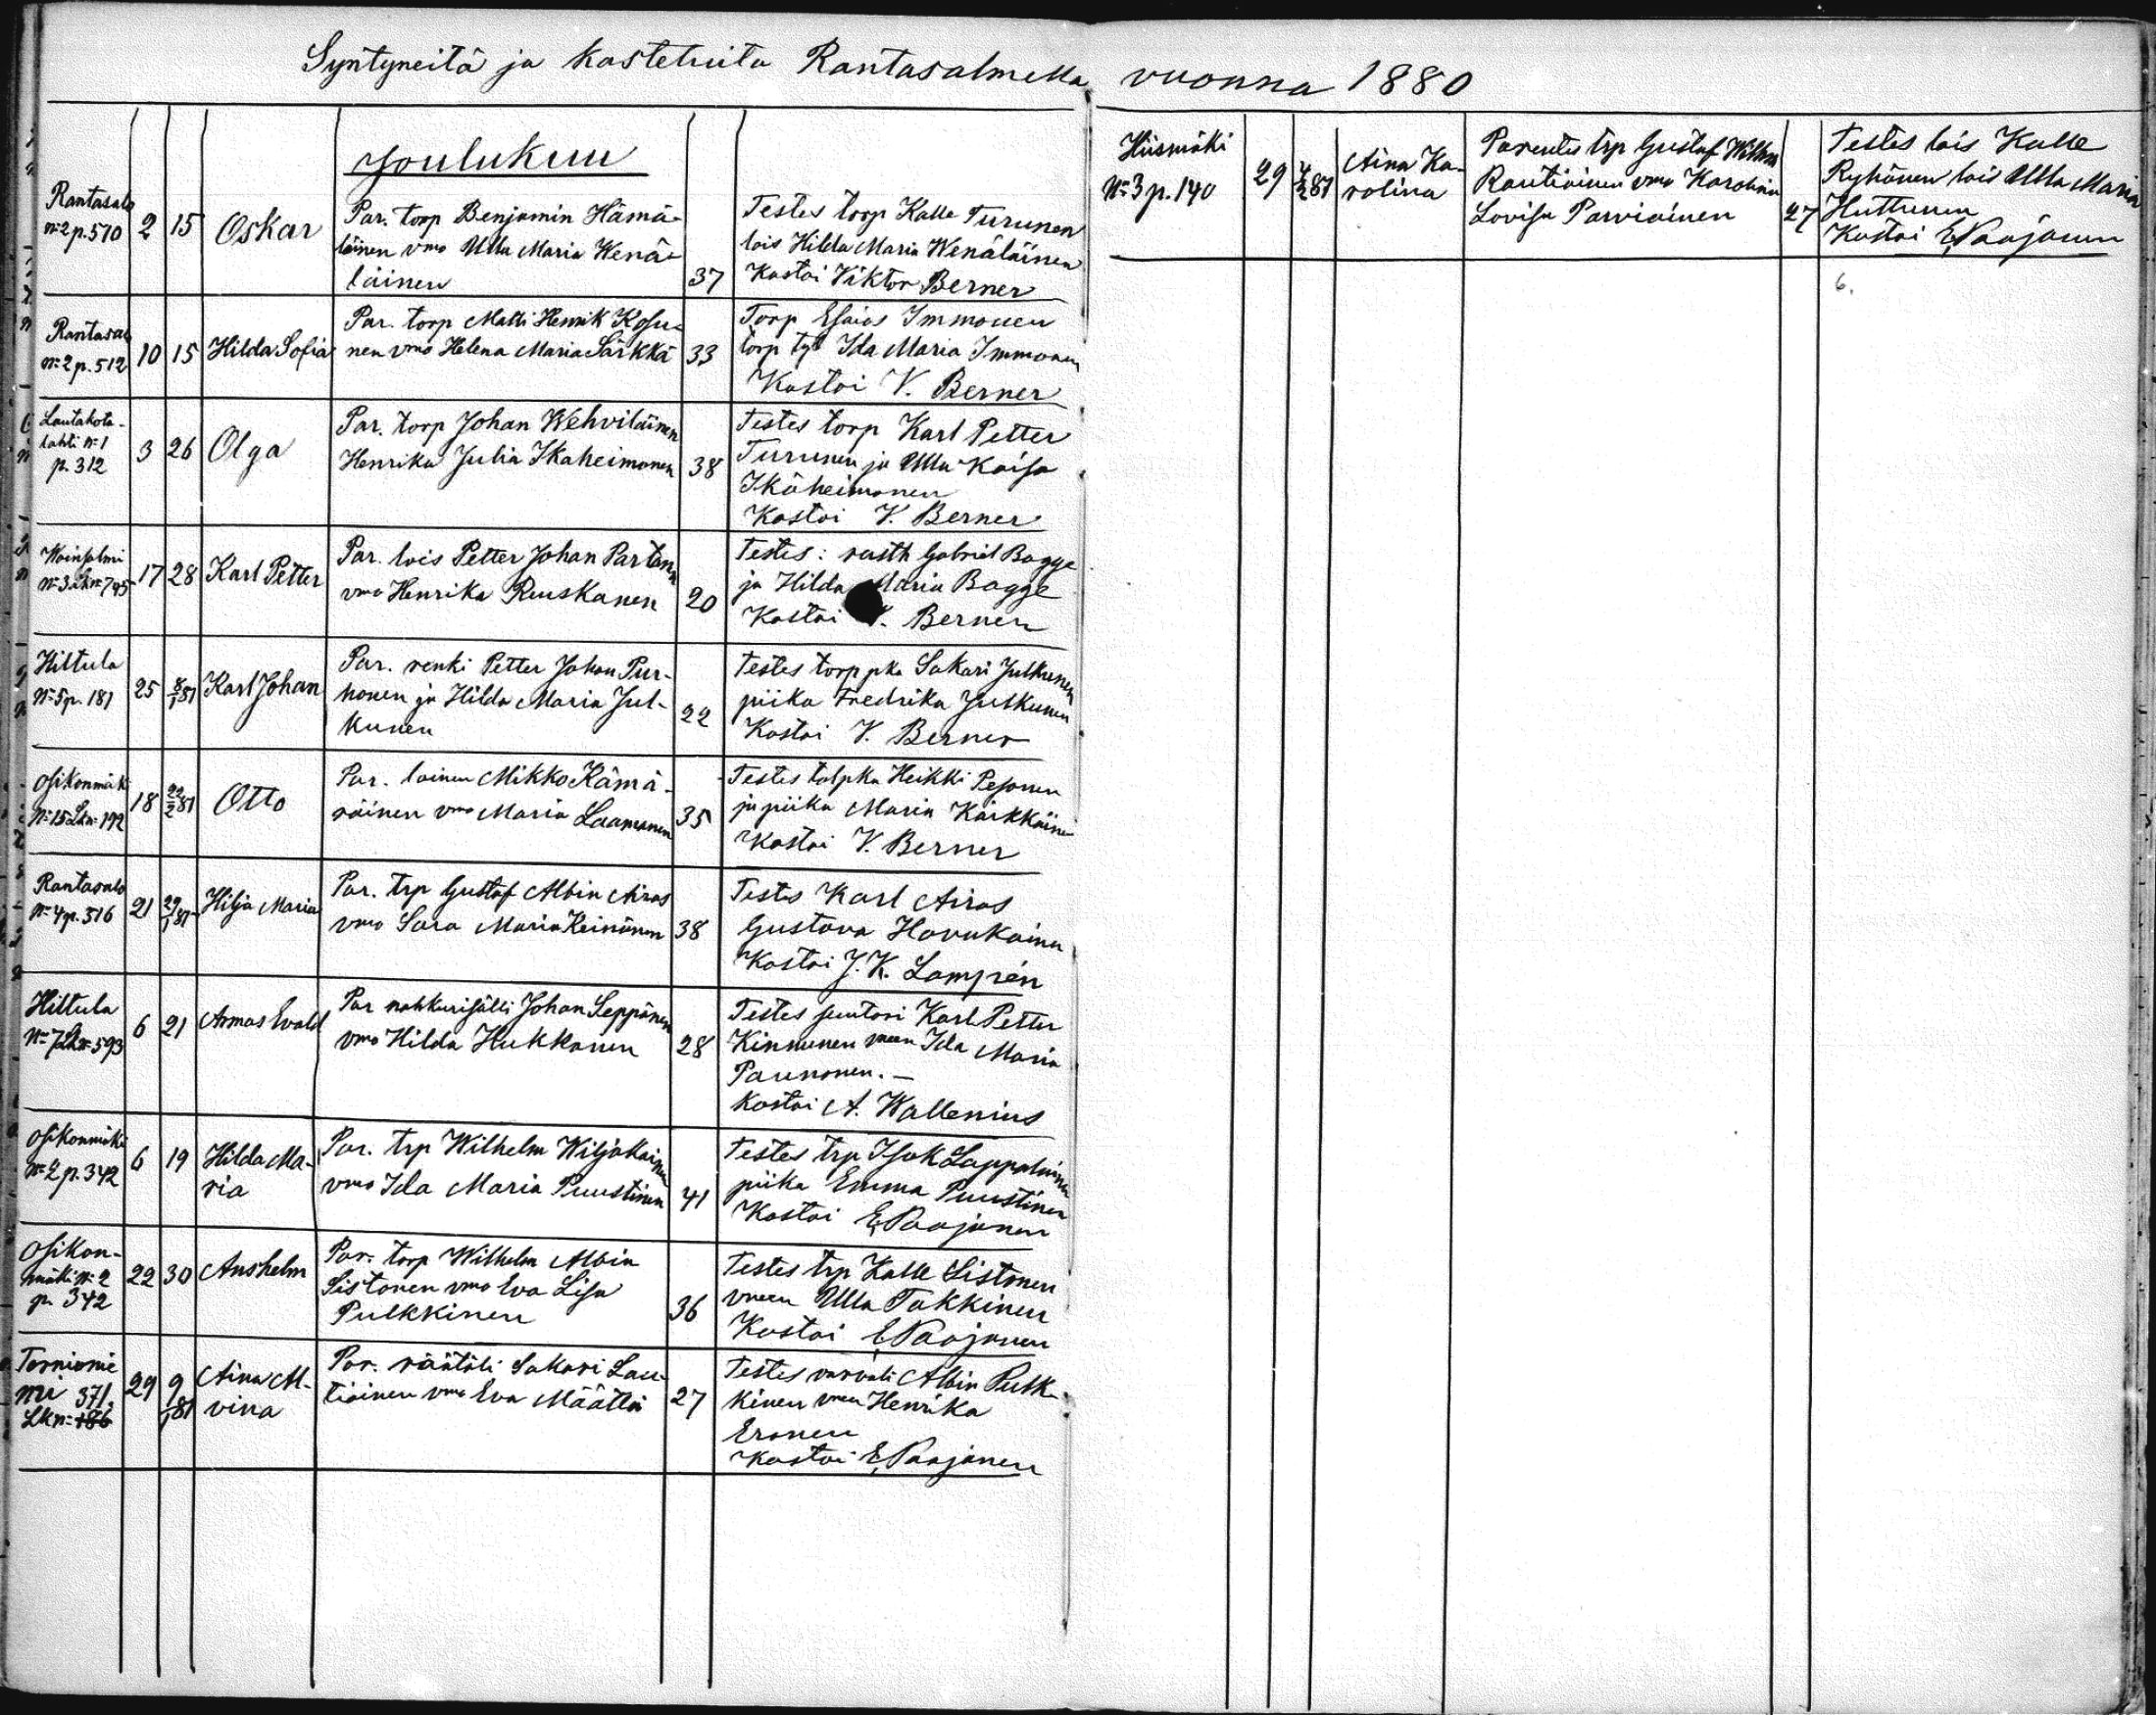 Syntyneitä ja kastetuita Rantasalmella vuonna 1880
Joulukuu
Rantasalo
No 2 p. 570
2 15 Oskar
Par. torp Benjamin Hämä-
läinen vmo Ulla Maria Wenä-
läinen
37
Testes torp Kalle Turunen
lois Hilda Maria Wenäläinen
Kastoi Viktor Berner
Rantasalo
No 2 p. 512
10 15 Hilda Sofia
Par. torp Matti Henrik Kosu-
nen vmo Helena Maria Särkkä
33
Torp Esaias Immonen
torp tyt Ida Maria Immonen
Kastoi V. Berner
Lautakota-
lahti No 1
p. 312
3 26 Olga
Par. torp Johan Wehviläinen
Henrika Julia Ikäheimonen
38
Testes torp Karl Petter
Turunen ja Ulla Kaisa
Ikäheimonen
Kastoi V. Berner
No 3 Lkn 745
17 28 Karl Petter
Par. lois Petter Johan Partanen
vmo Henrika Ruuskanen
20
Testes: rusth Gabriel Bagge
ja Hilda Maria Bagge
Kastoi V. Berner
Hiltula
No 5 p. 181
25 8/1 81 Karl Johan
Par. renki Petter Johan Pur-
honen ja Hilda Maria Jul-
kunen
22
Testes torp pka Sakari Julkunen
piika Fredrika Julkunen
Kastoi V. Berner
Osikonmäki
No 15 Lkn 192
18 22/2 81 Otto
Par. loinen Mikko Kämä-
räinen vmo Maria Laamanen
35
Testes talpka Heikki Pesonen
ja piika Maria Kärkkäinen
Kastoi V. Berner
Rantasalo
No 4 p. 516
21 29/1 81 Hilja Maria
Par. trp Gustaf Albin Airas
vmo Sara Maria Keinänen
38
Testes Karl Airas
Gustava Havukainen
Kastoi J. K. Lampén
Hiltula
No 7 Lkn 593
6 21 Armas Evald
Par nahkurisälli Johan Seppänen
vmo Hilda Hukkanen
28
Testes suutari Karl Petter
Kinnunen vneen Ida Maria
Paunonen. —
Kastoi A. Wallenius
Osikonmäki
No 2 p. 342
6 19 Hilda Ma-
ria
Par. trp Wilhelm Wiljakainen
vmo Ida Maria Puustinen
41
Testes trp Isak Lappalainen
piika Emma Puustinen
Kastoi E. Paajanen
Osikon-
mäki No 2
p. 342
22 30 Anshelm
Par. torp Wilhelm Albin
Sistonen vmo Eva Lisa
Pulkkinen
36
Testes trp Kalle Sistonen
vneen Ulla Takkinen
Kastoi E. Paajanen
Tornionie
mi 371.
Lkn 186
29 9/1 81 Aina Al-
vina
Par. räätäli Sakari Lau-
tiainen vmo Eva Määttä
27
Testes varvali Albin Pulk-
kinen vneen Henrika
Eronen
Kastoi E. Paajanen
Hiismäki
No 3 p. 140
29 4/2 81 Aina Ka-
rolina
Parentes trp Gustaf Wilhm
Rautiainen vmo Karolina
Lovisa Parviainen
27
Testes lois Kalle
Ryhänen lois Ulla Maria
Huttunen
Kastoi E. Paajanen
6.